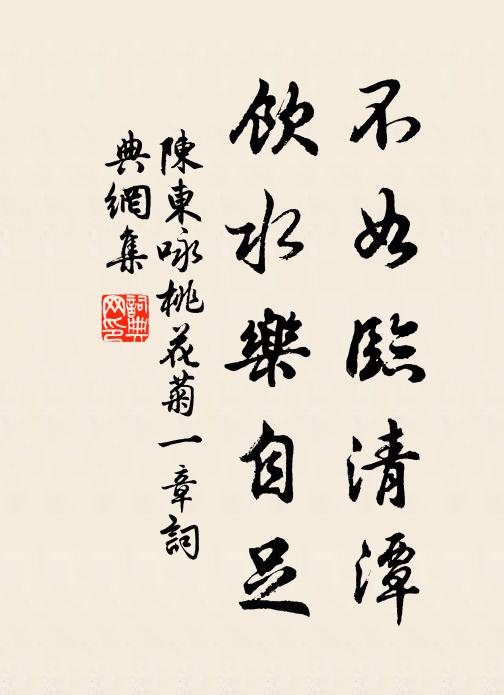 不如臨清潭
飲水樂自足
陳東咏桃花菊一章詞
典網集
詞典網印